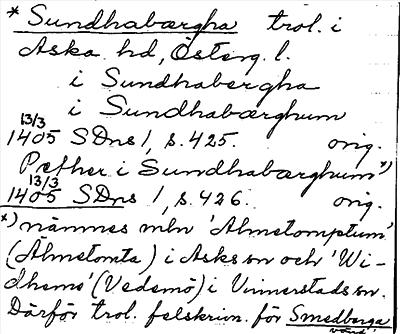 * Sundhabærgha trol. i
Aska hd, Österg. l.
i Sundhabergha
i Sundhabærghum
13/3
1405 SDns 1, s. 425. orig.
Pæther i Sundhabærghum*)
13/3
1405 SDns 1, s. 426. orig.
*) nämnes mln 'Almstomptum'
(Almstomta) i Asks sn och 'Wi-
dhems' (Vedemö) i Vinnerstads sn.
Därför trol. felskrivn. för Smedberga